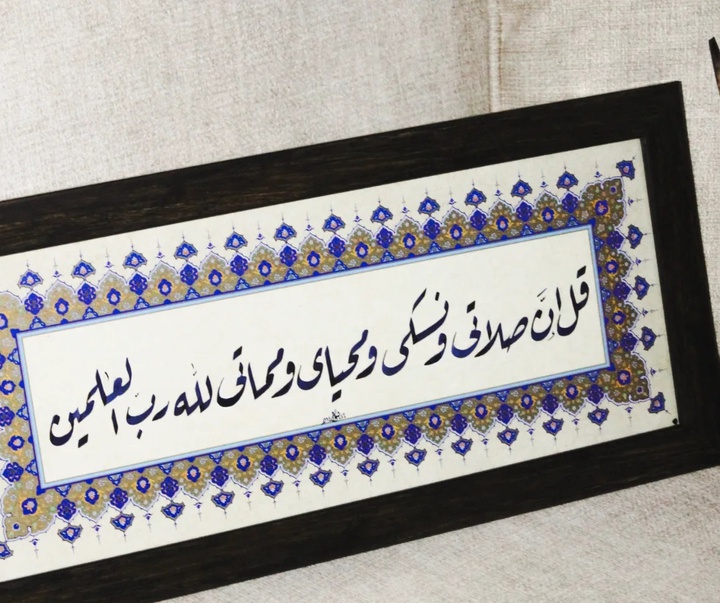 قل إنَّ صلاتی و نسکی و محیای و مماتی لله ربّ العلمین